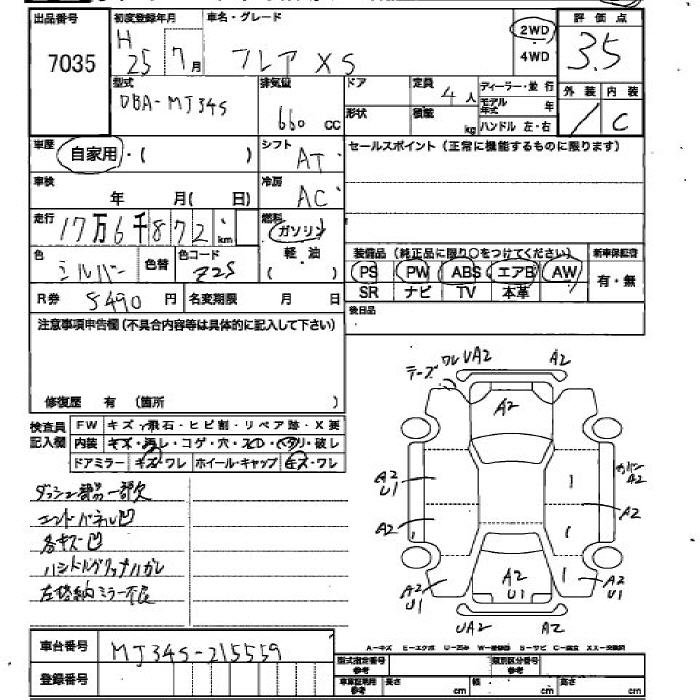 出品番号 初度登録年月 車名・グレード 2WD 評価点
7035 H 25 7月 フレア XS 4WD 3.5
型式 排気量 ドア 定員 ディーラー・並行 外装 内装
DBA-MJ34S 660 CC 4人 モデル年式 年 / C
形状 積載 kg ハンドル 左・右
車歴 自家用・( ) シフト AT セールスポイント(正常に機能するものに限ります)
車検 年 月( 日) 冷房 AC
走行 17万6千872 km 燃料 ガソリン
軽・油
( )
色 シルバー 色替 色コード Z2S
装備品(純正品に限り○をつけてください) 新車保証書
PS PW ABS エアB AW 有・無
SR ナビ TV 本革
R券 5490 円 名変期限 月 日
後日品
注意事項申告欄(不具合内容等は具体的に記入して下さい)
修復歴 有 (箇所 )
検査員記入欄
FW キズ・飛石・ヒビ割・リペア跡・X要
内装 キズ・汚レ・コゲ・穴・スレ・ヘタリ・破レ
ドアミラー キズ・ワレ ホイール・キャップ キズ・ワレ
ダッシュ部品一部欠
エンドパネル凹
各キズ凹
左格納ミラー不良
テープ ワレ UA2 A2
A2
A2
U1
カバー
A2
A2 A2
A2
U1
A2
U1
A2
U1
UA2 A2
A-キズ E-エクボ U-凹み W-補修跡 S-サビ C-腐食 XX-交換済
車台番号 MJ34S-215559
登録番号
型式指定番号 参考 類別区分番号 参考
車庫証明用 参考 長さ cm 幅 cm 高さ cm